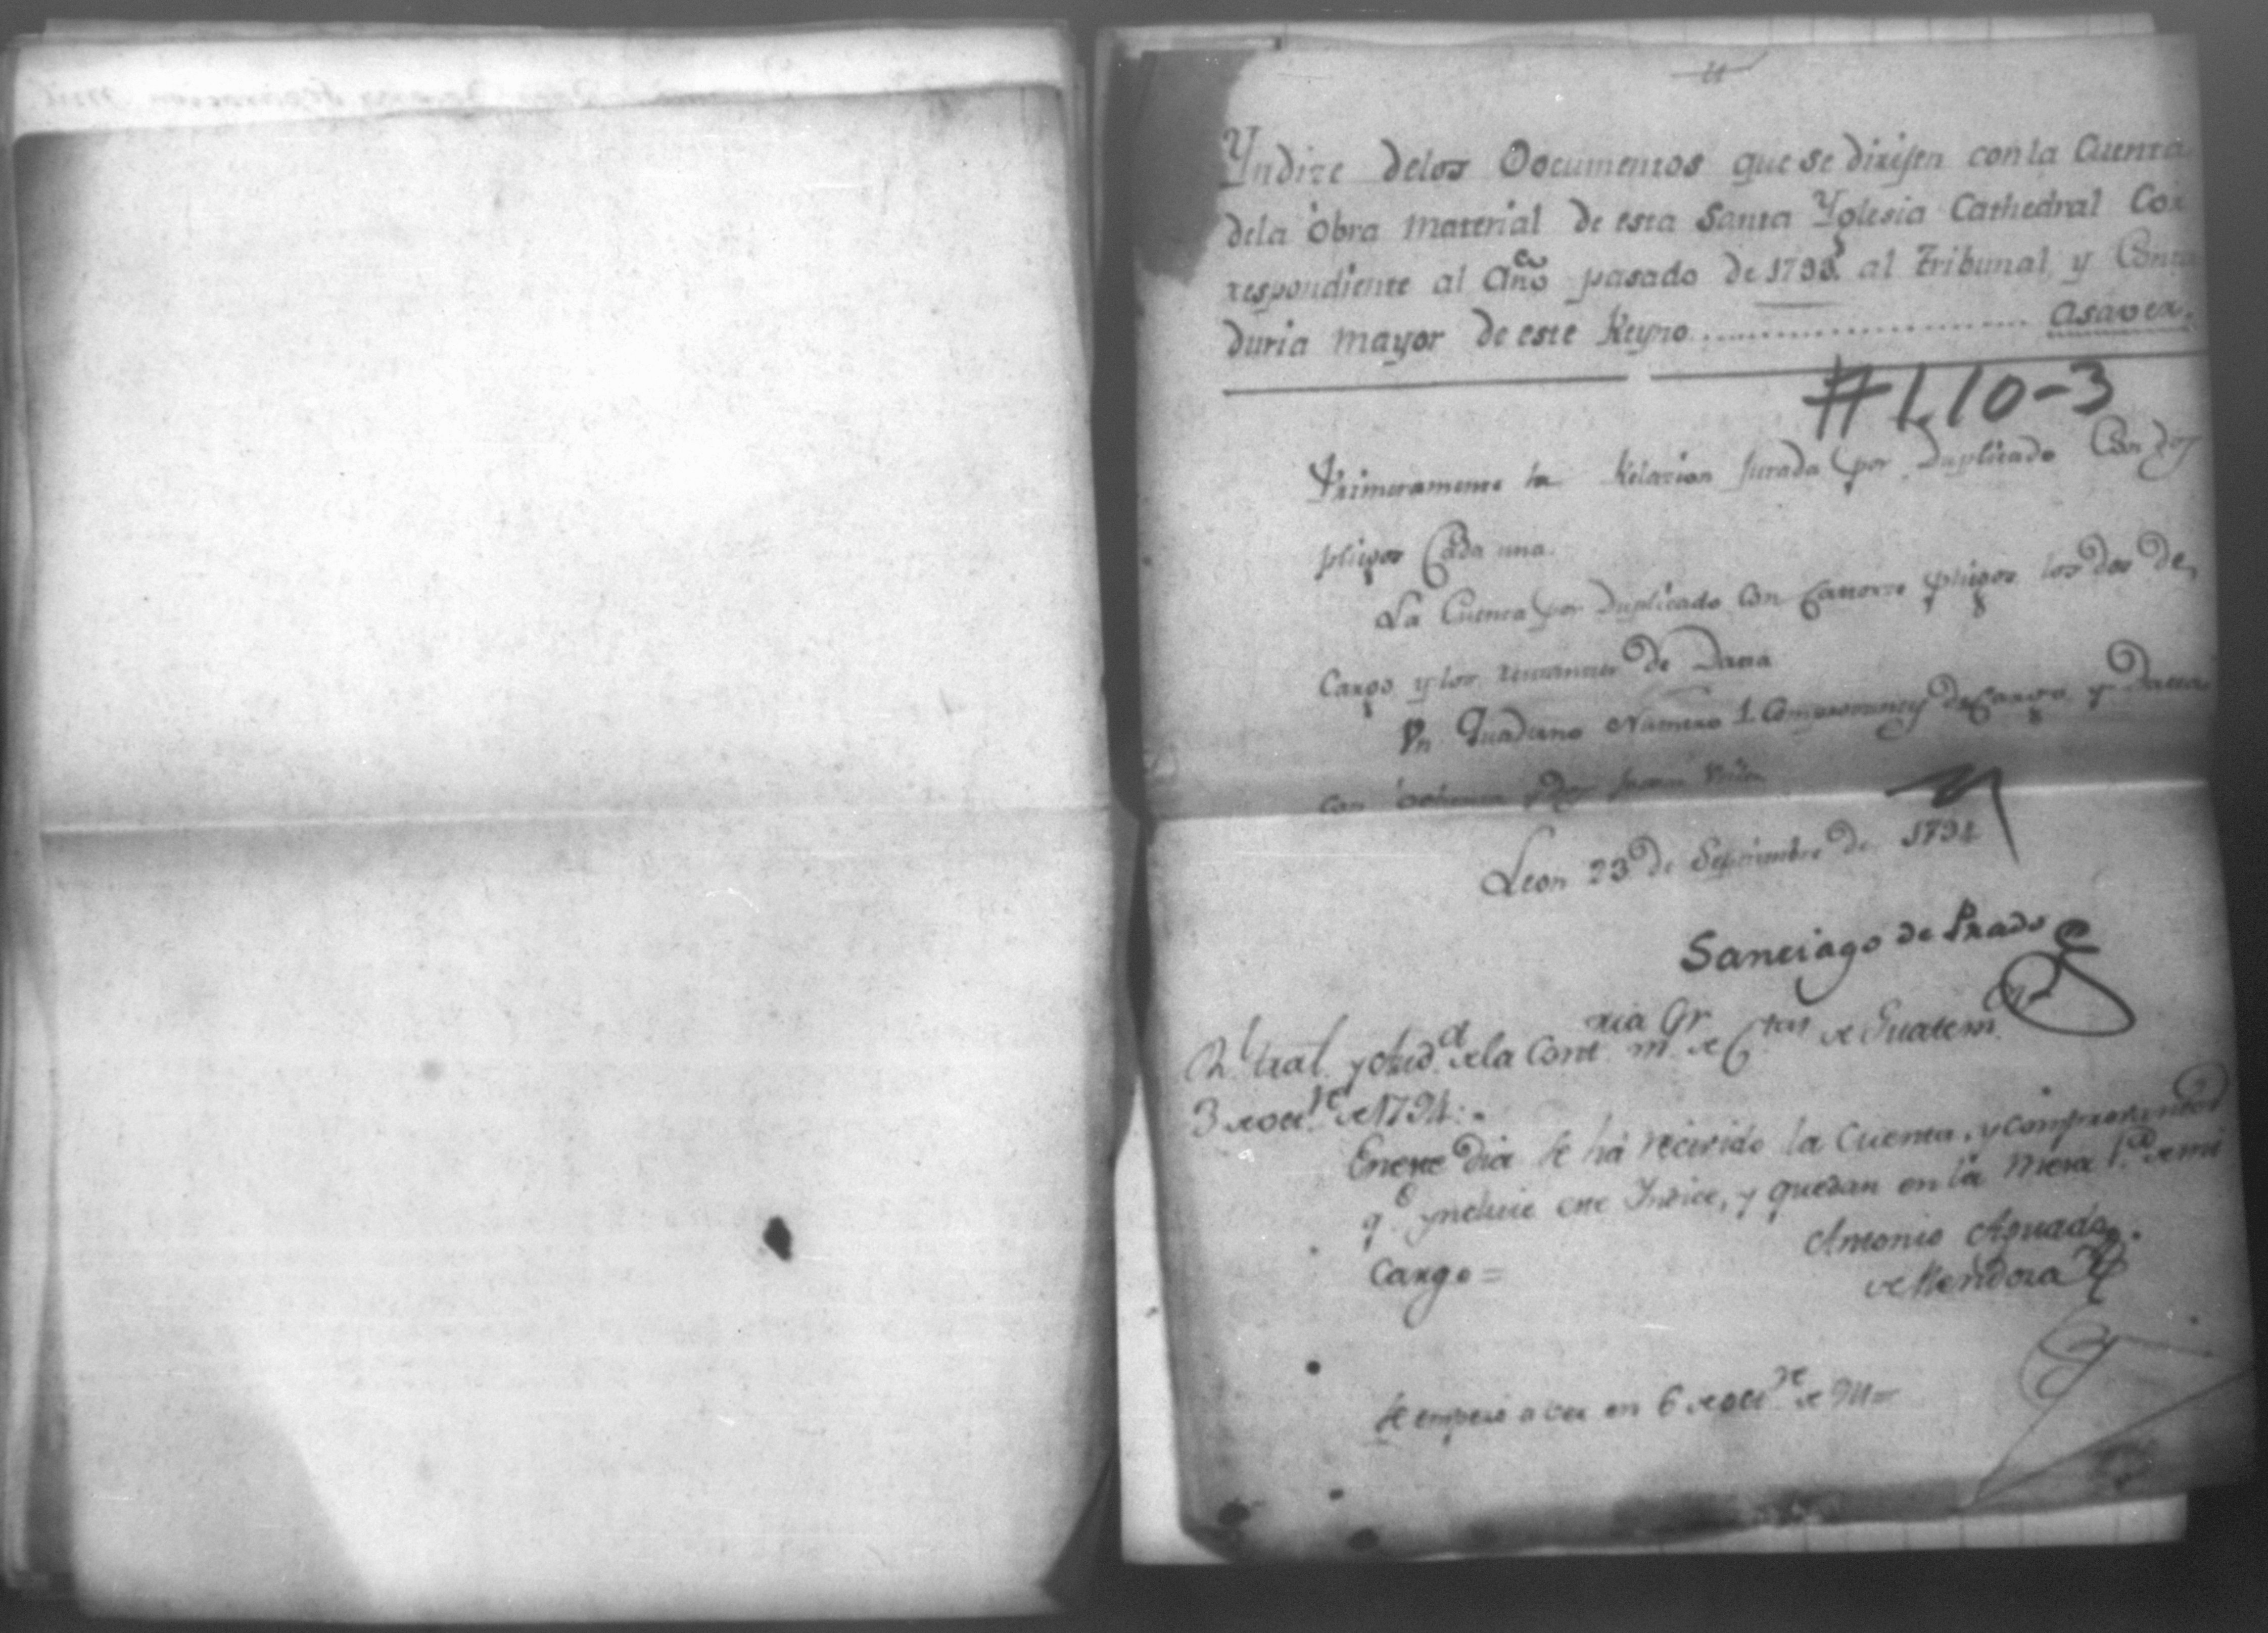 Yndize delos Documentos que se dirijen con la Cuenta
dela obra material de esta Santa Yglesia Cathedral Cor
respondiente al Año pasado de 1793. al Tribunal, y Conta
duria mayor de este Reyno ........................ asaver.
#L10-3
Primeramente la Relazion Jurada por Duplicado Con dos
pliegos Cada una.
La Cuenta por Duplicado Con Catorze pliegos los dos de
Cargo y los restantes de Datta
Vn Quaderno Numero 1 Comprovantes de Cargo y Datta
con ochenta
Leon 23 de Septiembre de 1794
Santiago de Prado
Rl tral. y Aud.a de la Cont.ria m.r de C.tas de Guatem.a
3 de oct.re de 1794.
En ene dia se há recivido la Cuenta, y comprovantes
q.e yncluie ene Yndice, y quedan en la Mesa 1.a de mi
Cargo =
Antonio Aguado
de Mendoza
se empezo a ver en 6 de oct.re de 94=